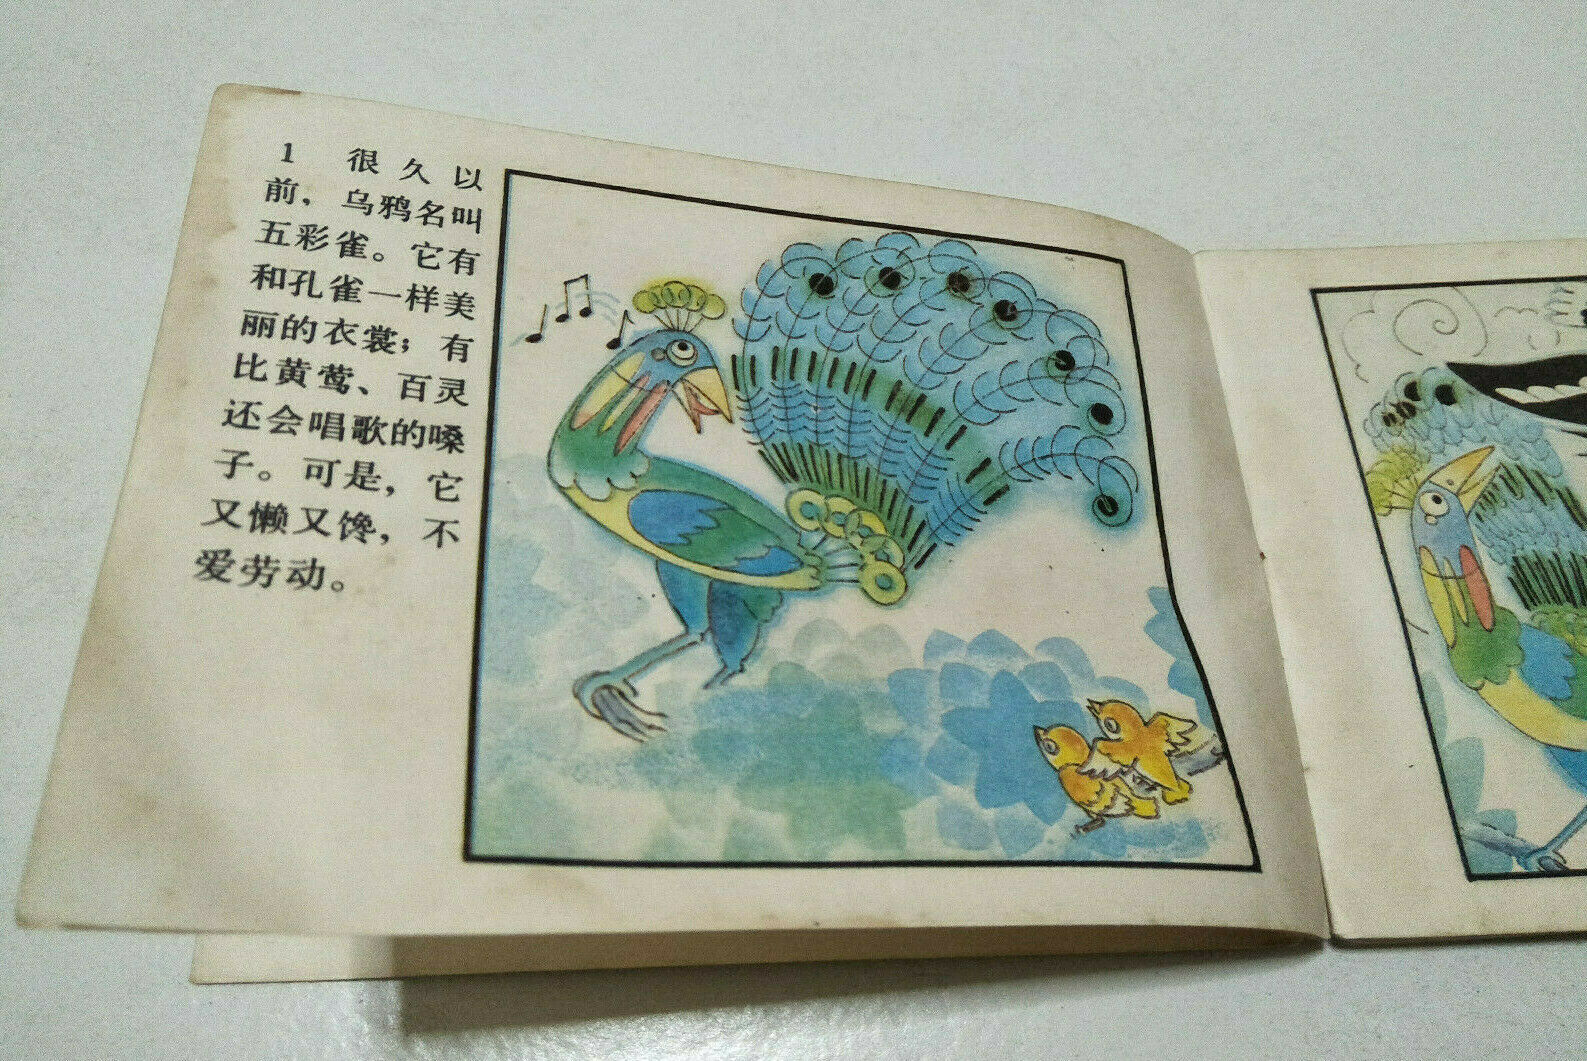 1 很久以
前，乌鸦名叫
五彩雀。它有
和孔雀一样美
丽的衣裳；有
比黄莺、百灵
还会唱歌的嗓
子。可是，它
又懒又馋，不
爱劳动。